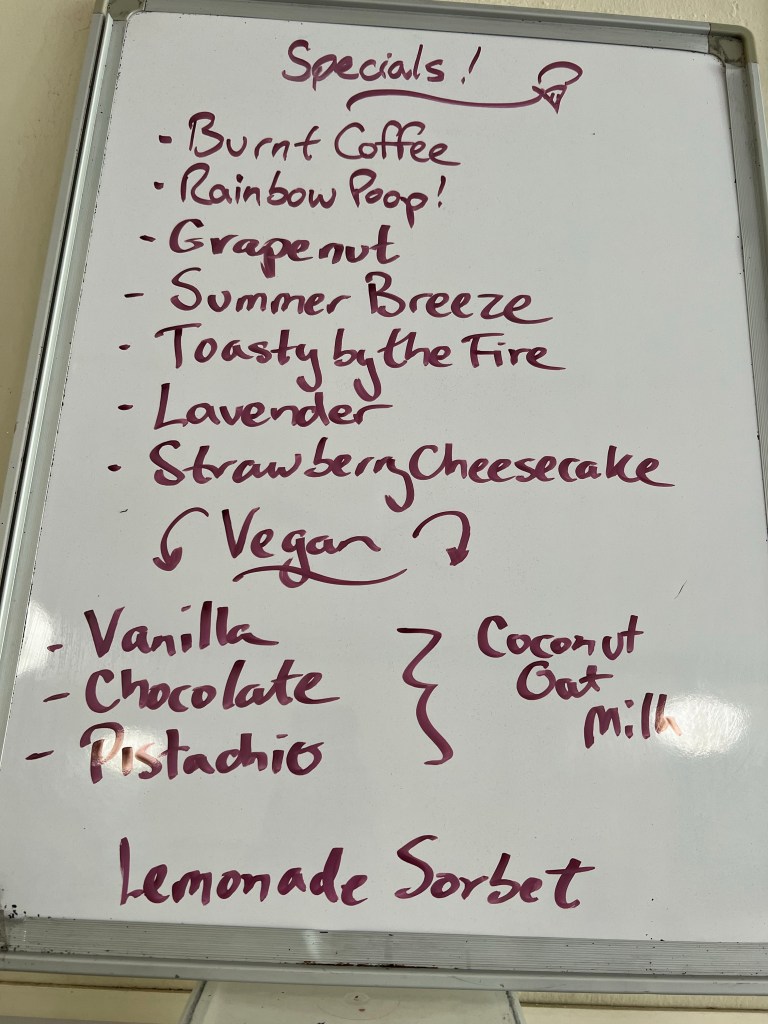 Specials!
- Burnt Coffee
- Rainbow Poop!
- Grapenut
- Summer Breeze
- Toasty by the Fire
- Lavender
- Strawberry Cheesecake
Vegan
- Vanilla
- Chocolate
- Pistachio
Coconut
Oat
Milk
Lemonade Sorbet